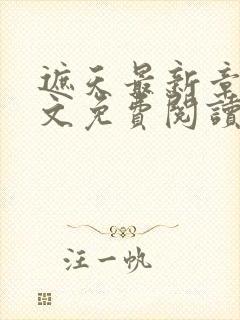 遮天最新章
文免費閱讀
汪一帆